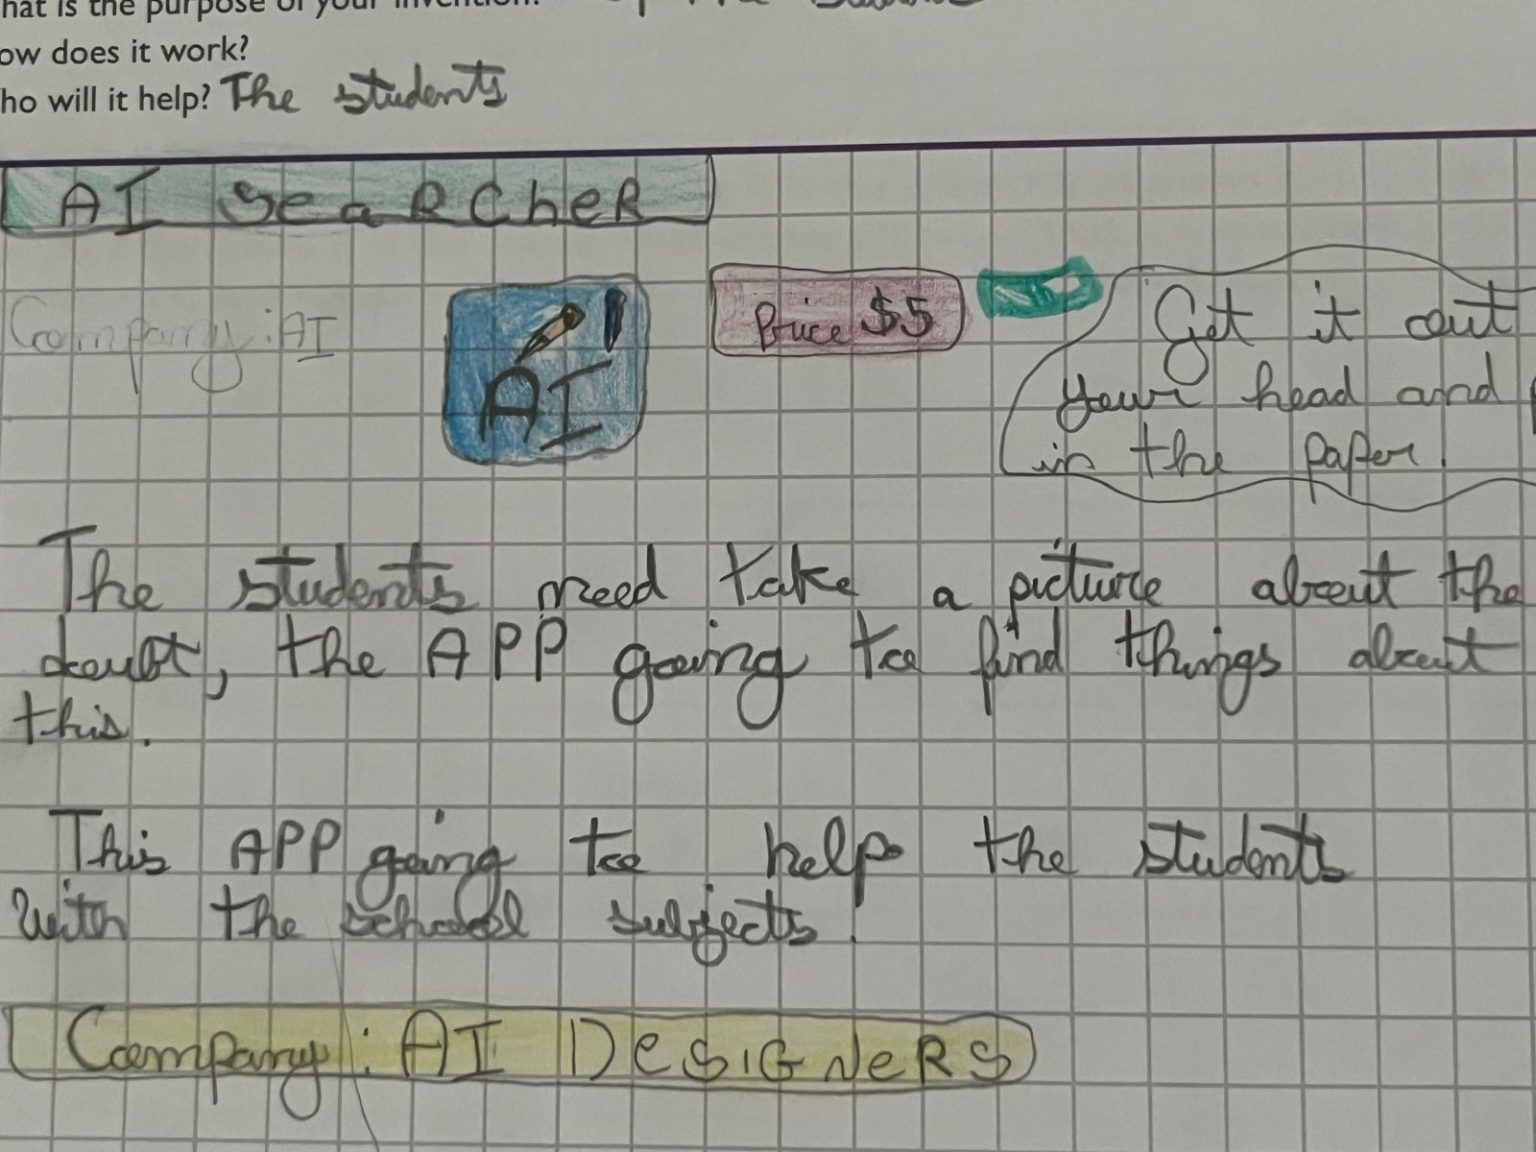 hat is the purpose of your invention?
ow does it work?
ho will it help? The students
AI SeaRCheR
Company: AI
AI
Price $5
Get it out
your head and
in the paper.
The students need take a picture about the
doubt, the APP going to find things about
this.
This APP going to help the students
with the school subjects.
Company: AI DeSIGNeRS